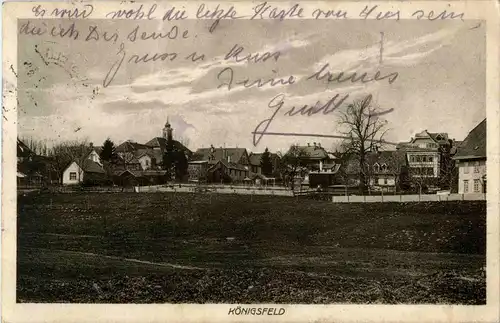 Es wird wohl die letzte Karte von hier sein
die ich Dir sende.
Gruss u. Kuss
Deine treues
KÖNIGSFELD